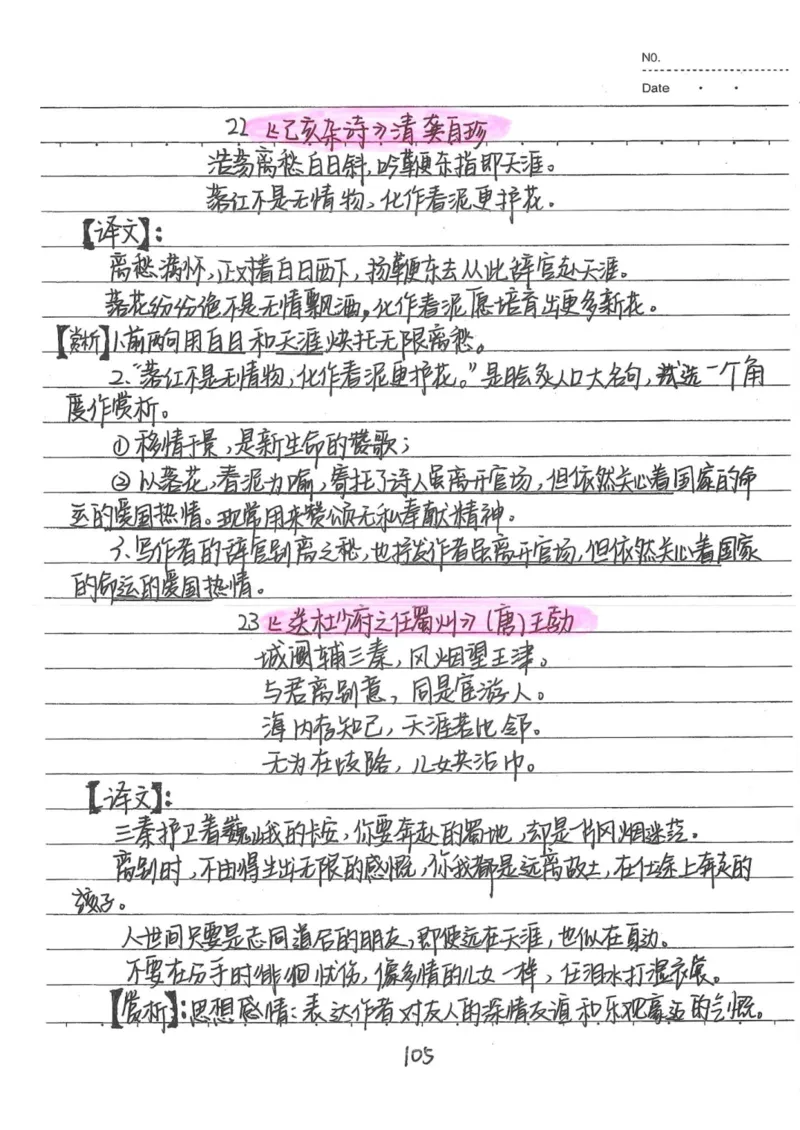 NO.
Date
22 《己亥杂诗》清 龚自珍
浩荡离愁白日斜，吟鞭东指即天涯。
落红不是无情物，化作春泥更护花。
【译文】：
离愁满怀，正对着白日西下，扬鞭东去从此辞官赴天涯。
落花纷纷绝不是无情飘洒，化作春泥愿培育出更多新花。
【赏析】1、前两句用白日和天涯烘托无限离愁。
2、“落红不是无情物，化作春泥更护花。”是脍炙人口大名句，试选一个角
度作赏析。
①移情于景，是新生命的赞歌；
②以落花，春泥为喻，寄托了诗人虽离开官场，但依然关心着国家的命
运的爱国热情。现常用来赞颂无私奉献精神。
3、写作者的辞官别离之愁，也抒发作者虽离开官场，但依然关心着国家
的命运的爱国热情。
23 《送杜少府之任蜀州》（唐）王勃
城阙辅三秦，风烟望王津。
与君离别意，同是宦游人。
海内存知己，天涯若比邻。
无为在歧路，儿女共沾巾。
【译文】：
三秦护卫着巍峨的长安，你要奔赴的蜀地，却是一片风烟迷茫。
离别时，不由得生出无限的感慨，你我都是远离故土，在仕途上奔走的
孩子。
人世间只要是志同道合的朋友，即使远在天涯，也似在身边。
不要在分手时徘徊忧伤，像多情的儿女一样，任泪水打湿衣裳。
【赏析】：思想感情：表达作者对友人的深情友谊和乐观豪迈的气慨。
105